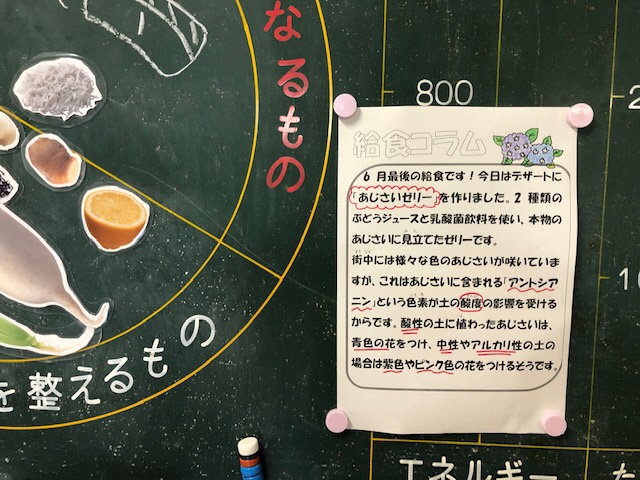 なるもの
を整えるもの
800
給食コラム
6月最後の給食です！今日はデザートに
「あじさいゼリー」を作りました。2種類の
ぶどうジュースと乳酸菌飲料を使い、本物の
あじさいに見立てたゼリーです。
街中には様々な色のあじさいが咲いていま
すが、これはあじさいに含まれる「アントシア
ニン」という色素が土の酸度の影響を受ける
からです。酸性の土に植わったあじさいは、
青色の花をつけ、中性やアルカリ性の土の
場合は紫色やピンク色の花をつけるそうです。
エネルギー
た